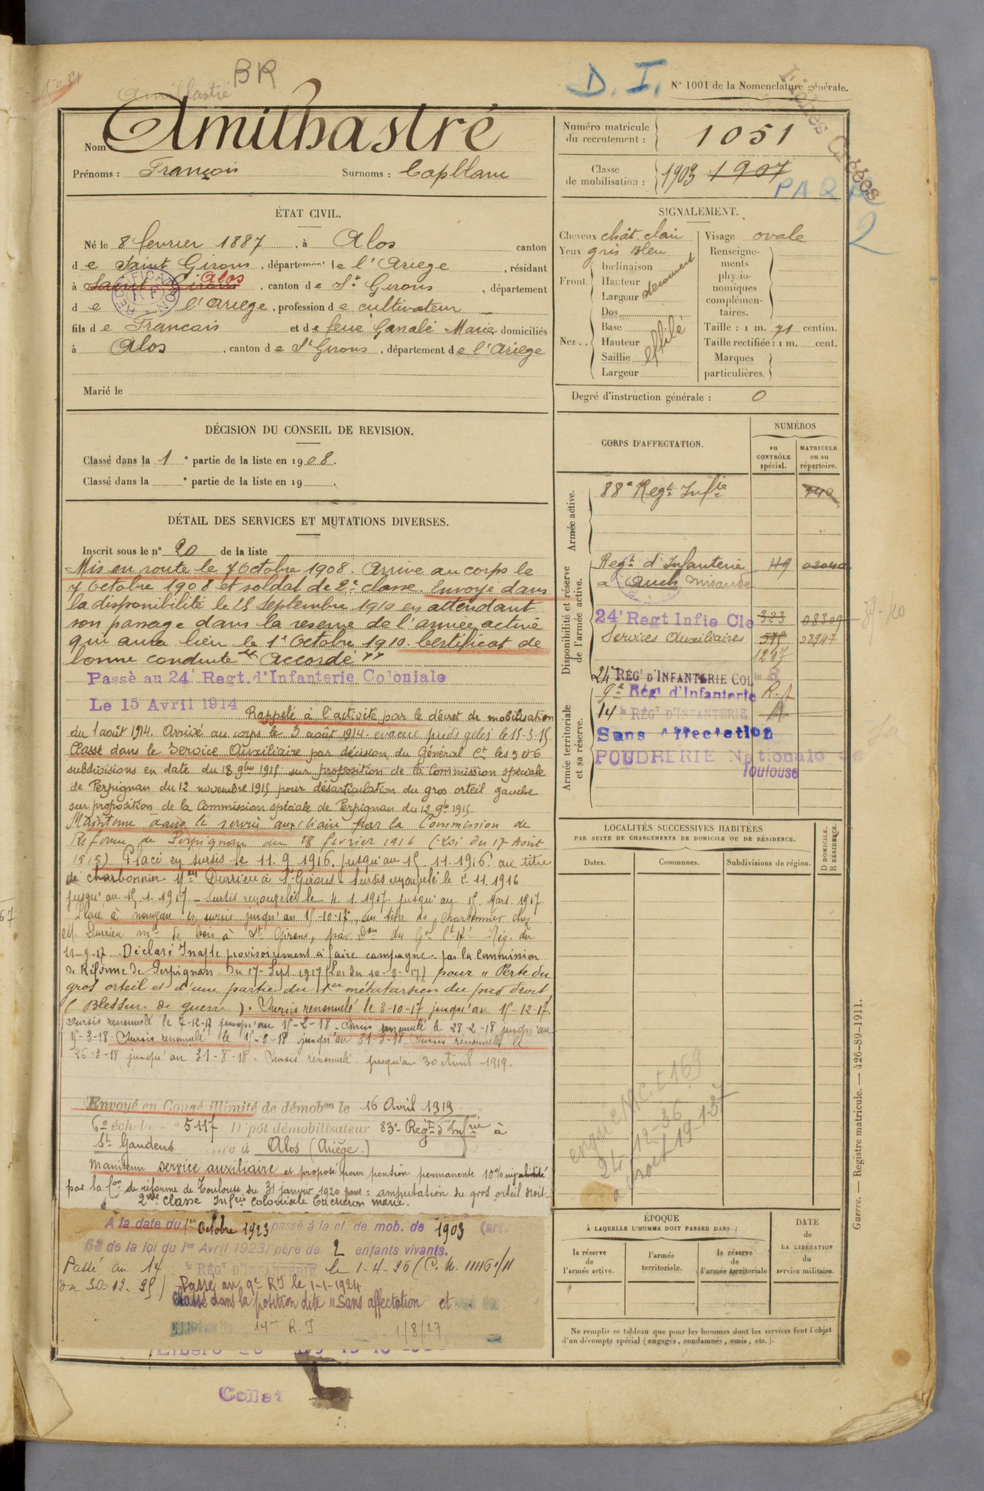 BR
Amilhastre
D. I.
N° 1001 de la Nomenclature générale.
Nom Amilhastré
Prénoms : François Surnoms : Capblanc
Numéro matricule du recrutement : 1051
Classe de mobilisation : 1903 1907
2
ÉTAT CIVIL.
Né le 8 février 1887, à Alos canton
de Saint Girons, département de l'Ariège, résidant
à Saint Girons Alos, canton de St Girons, département
de l'Ariège, profession de cultivateur
fils de Francois et de feue Galabé Marie domiciliés
à Alos, canton de St Girons, département de l'Ariège
Marié le
SIGNALEMENT.
Cheveux chât. clair
Yeux gris bleu
Front. Inclinaison
Hauteur
Largeur
Nez .. Dos
Base
Hauteur
Saillie
Largeur
effilé
Visage ovale
Renseignements physionomiques complémentaires.
Taille : 1 m. 71 centim.
Taille rectifiée : 1 m. cent.
Marques particulières.
Degré d'instruction générale : 0
DÉCISION DU CONSEIL DE REVISION.
Classé dans la 1 e partie de la liste en 1908.
Classé dans la e partie de la liste en 19
DÉTAIL DES SERVICES ET MUTATIONS DIVERSES.
Inscrit sous le n° 20 de la liste
Mis en route le 7 Octobre 1908. Arrivé au corps le
7 Octobre 1908 et soldat de 2e classe. Envoyé dans
la disponibilité le 28 Septembre 1910 en attendant
son passage dans la réserve de l'armée active
qui aura lieu le 1er Octobre 1910. Certificat de
bonne conduite "accordé"
Passé au 24 Regt. d'Infanterie Coloniale
Le 15 Avril 1914 Rappelé à l'activité par le décret de mobilisation
du 1 août 1914. Arrivé au corps le 3 août 1914. évacué pieds gelés le 15-3-15
Classé dans le Service Auxiliaire par décision du Général Ct les 5 et 6
subdivisions en date du 18 9bre 1915 sur proposition de la Commission spéciale
de Perpignan du 12 novembre 1915 pour désarticulation du gros orteil gauche
sur proposition de la Commission spéciale de Perpignan du 12 9bre 1915
Maintenu dans le service auxiliaire par la Commission de
Réforme de Perpignan du 18 février 1916 (Loi du 17 Août
1915) Placé en sursis le 11.9.1916 jusqu'au 15.11.1916 au titre
de charbonnier Mon Durrieu à St Girons. Sursis renouvelé le 2.11.1916
jusqu'au 15.1.1917. Sursis renouvelé le 4.1.1917 jusqu'au 15 Mars 1917
Placé à nouveau en sursis jusqu'au 15-10-17, au titre de charbonnier chez
M. Durrieu md de bois à St Girons, par Don du Gal Ct la Rég. du
11-9-17. Déclaré Inapte provisoirement à faire campagne par la Commission
de Réforme de Perpignan du 17 Sept. 1917 pour "Perte du
gros orteil et d'une partie du 1er métatarsien du pied droit
(Blessure de guerre). Sursis renouvelé le 3-10-17 jusqu'au 15-12-17.
Sursis renouvelé le 7-12-17 jusqu'au 15-2-18. Sursis renouvelé le 28-2-18 jusqu'au
jusqu'au 31-8-18. Sursis renouvelé jusqu'au 30 avril 1919.
Envoyé en Congé illimité de démobon le 16 Avril 1919
6e échelon n° 5117 Dépôt démobilisateur 83e Regt d'Infrie à
St Gaudens se retire à Alos (Ariège.)
Maintenu service auxiliaire et proposé pour pension permanente 10% invalidité
par la Con de réforme de Toulouse du 31 janvier 1920 pour : amputation du gros orteil droit.
2me classe Infrie Coloniale
A la date du 1er Octobre 1923 passé à la cl. de mob. de 1903 (art.
58 de la loi du 1er Avril 1923) père de 2 enfants vivants.
Passé au 14 e RÉGt D'INFANTERIE le 1-4-26
Passé au 9e R I le 1-1-1924
Classé dans la position dite "Sans affectation
14me R. I 1/8/27
Collet
CORPS D'AFFECTATION.
NUMÉROS
au CONTRÔLE spécial.
MATRICULE ou au répertoire.
Armée active.
88e Regt Infie
Disponibilité et réserve de l'armée active.
Regt d'Infanterie
à Auch Mirande
24e Regt Infie Cle
Services Auxiliaires
Armée territoriale et sa réserve.
24e RÉGt D'INFANTERIE COLle
9e Régt d'Infanterie
14 e RÉGt D'INFANTERIE
Sans Affectation
POUDRERIE Nationale de
Toulouse
LOCALITÉS SUCCESSIVES HABITÉES
PAR SUITE DE CHANGEMENTS DE DOMICILE OU DE RÉSIDENCE.
Dates.
Communes.
Subdivisions de région.
D DOMICILE. R RÉSIDENCE.
ÉPOQUE
À LAQUELLE L'HOMME DOIT PASSER DANS :
la réserve de l'armée active.
l'armée territoriale.
la réserve de l'armée territoriale
DATE de LA LIBÉRATION du service militaire.
Ne remplir ce tableau que pour les hommes dont les services font l'objet
d'un décompte spécial (engagés, condamnés, omis, etc.).
Guerre. — Registre matricule. — 426-89-1911.